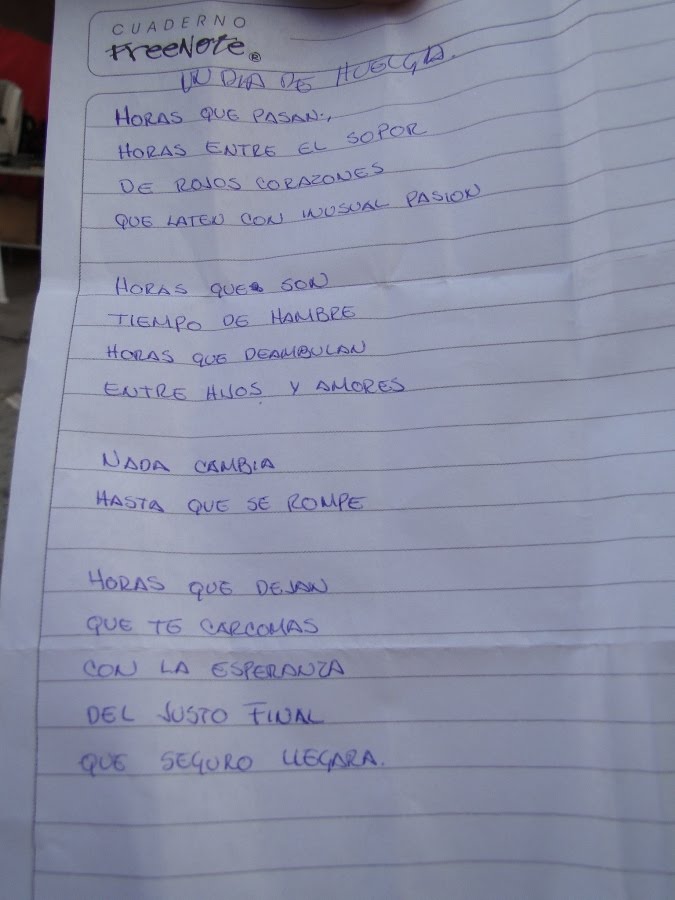 CUADERNO
FreeNote®
UN DIA DE HUELGA.
HORAS QUE PASAN.,
HORAS ENTRE EL SOPOR
DE ROJOS CORAZONES
QUE LATEN CON INUSUAL PASION
HORAS QUE SON
TIEMPO DE HAMBRE
HORAS QUE DEAMBULAN
ENTRE HIJOS Y AMORES
NADA CAMBIA
HASTA QUE SE ROMPE
HORAS QUE DEJAN
QUE TE CARCOMAS
CON LA ESPERANZA
DEL JUSTO FINAL
QUE SEGURO LLEGARA.